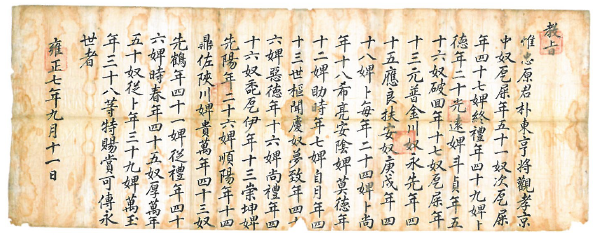 教旨
惟忠原君朴東亨將觀孝京
中奴厄屎年五十一奴次厄屎
年四十七婢終禮年四十九婢卜
德年二十光遠婢斗貞年五
十六奴破回年十七奴厄屎年
十三元普金川奴永先年四
十五應良扶安奴庚戌年四
十八婢卜每年二十四婢卜尚
年十八希亮安陰婢莫德年
十二婢助時年七婢自月年四
十三世樞聞慶奴夢致年四
六婢惡德年十六婢尚禮年四
十六奴厄伊年十三崇坤婢
先陽年二十六婢順陽年十四
鼎佐陜川婢貴萬年四十三奴
先鶴年四十一婢從禮年四十
六婢時春年四十五奴厚萬年
五十奴從卜年三十九婢萬玉
年三十八等特賜賞可傳永
世者
雍正七年九月十一日